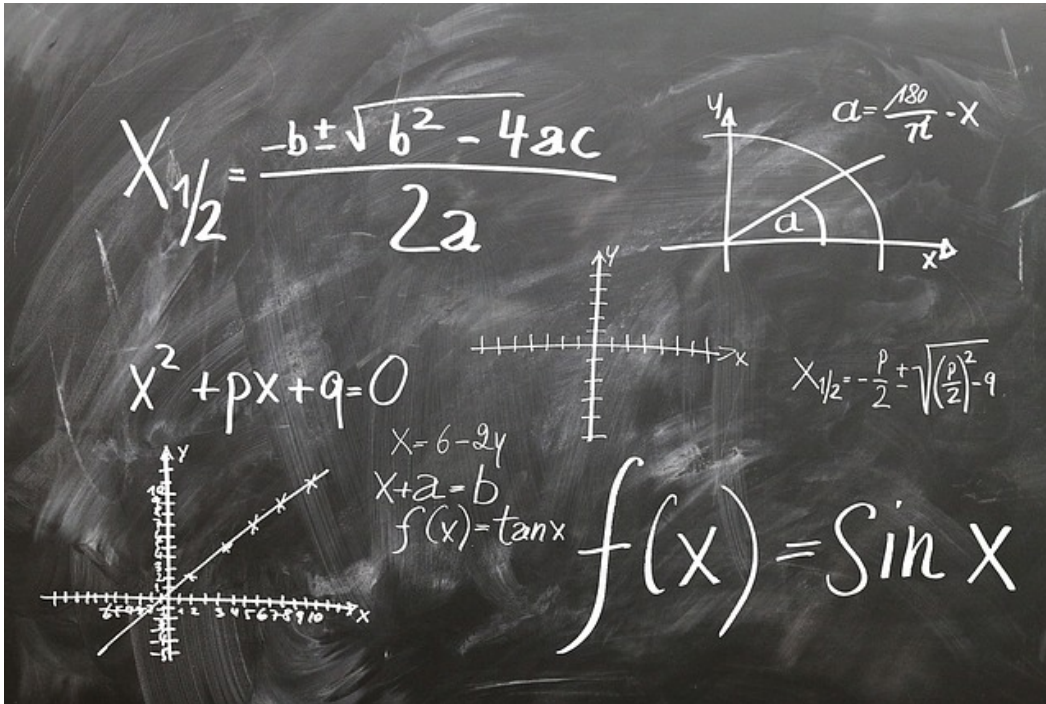 X1/2 = -b±√b² - 4ac / 2a
y
a = 180/π - x
a
x
y
x
x² + px + q = 0
X1/2 = -p/2 ± √(p/2)² - q
x = 6 - 2y
x + a = b
f(x) = tan x
f(x) = Sin x
y
1 2 3 4 5 6 7 8 9 10 x